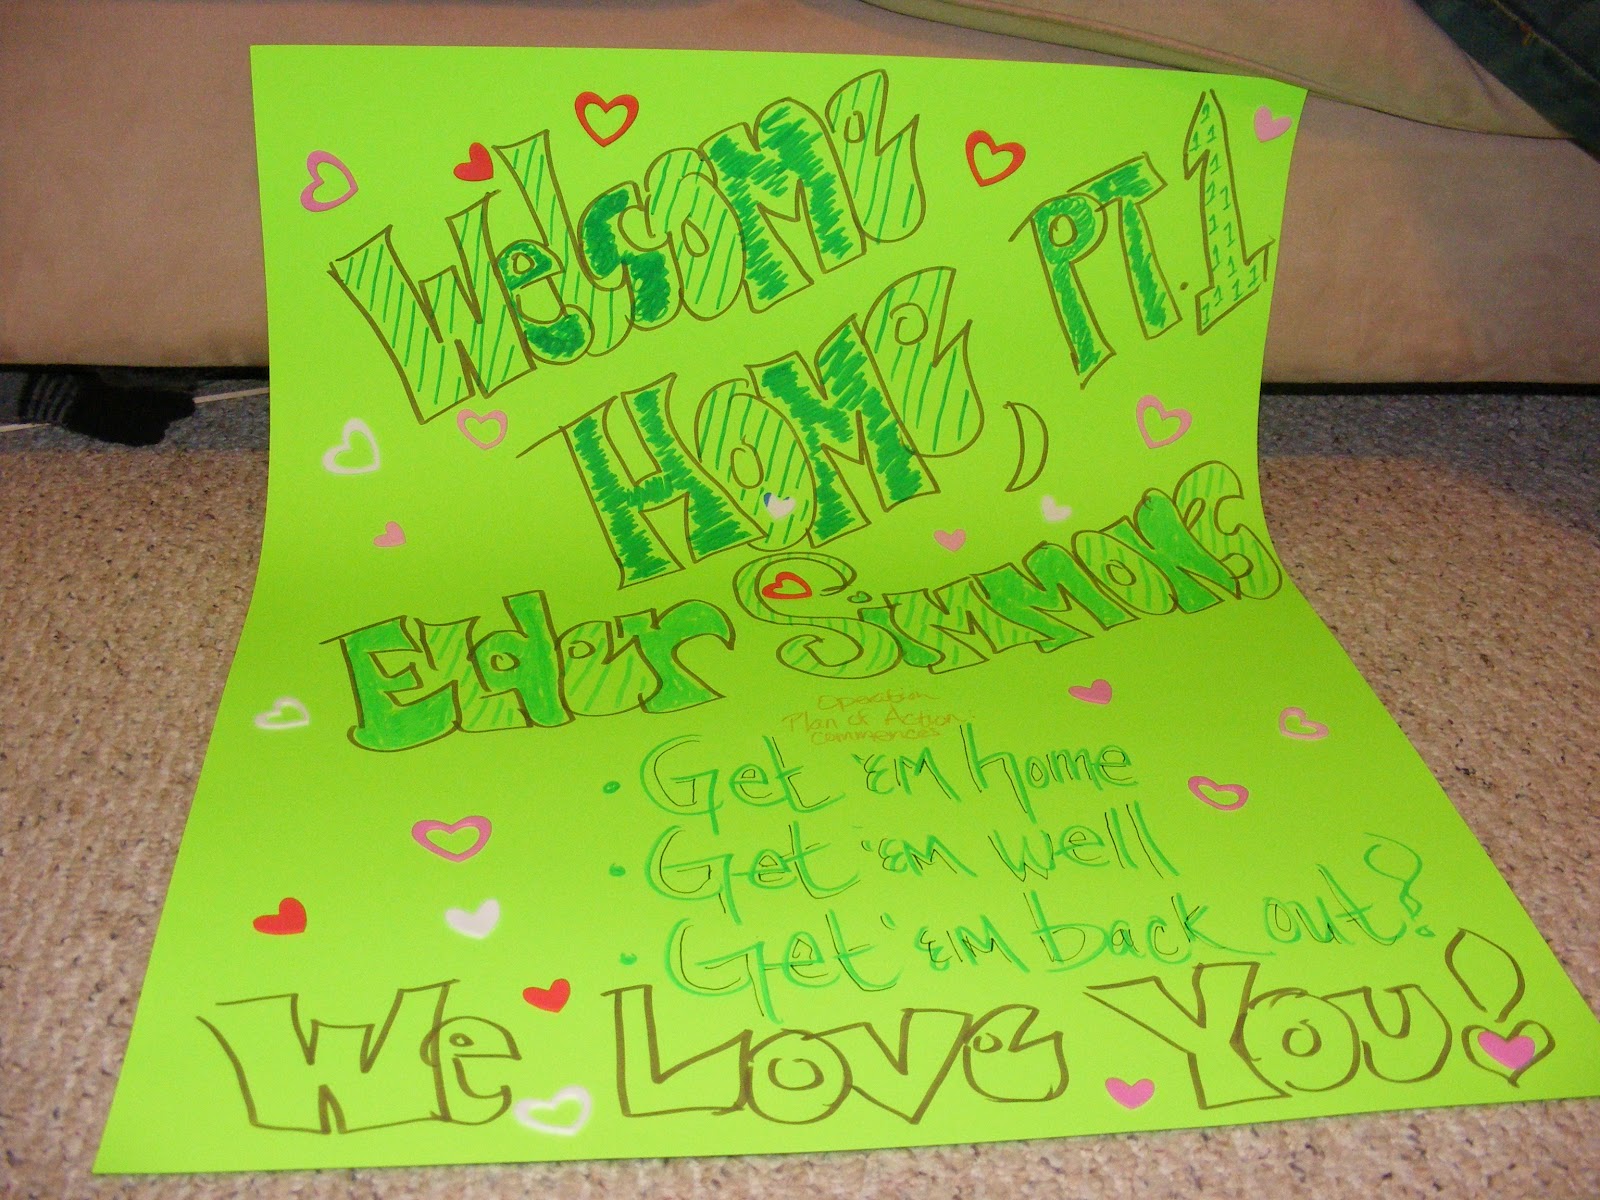 Welcome PT. 1
Home,
Elder Simmons
Operation
Plan of Action:
Commences
• Get 'em home
• Get 'em well
• Get 'em back out!
We Love You!